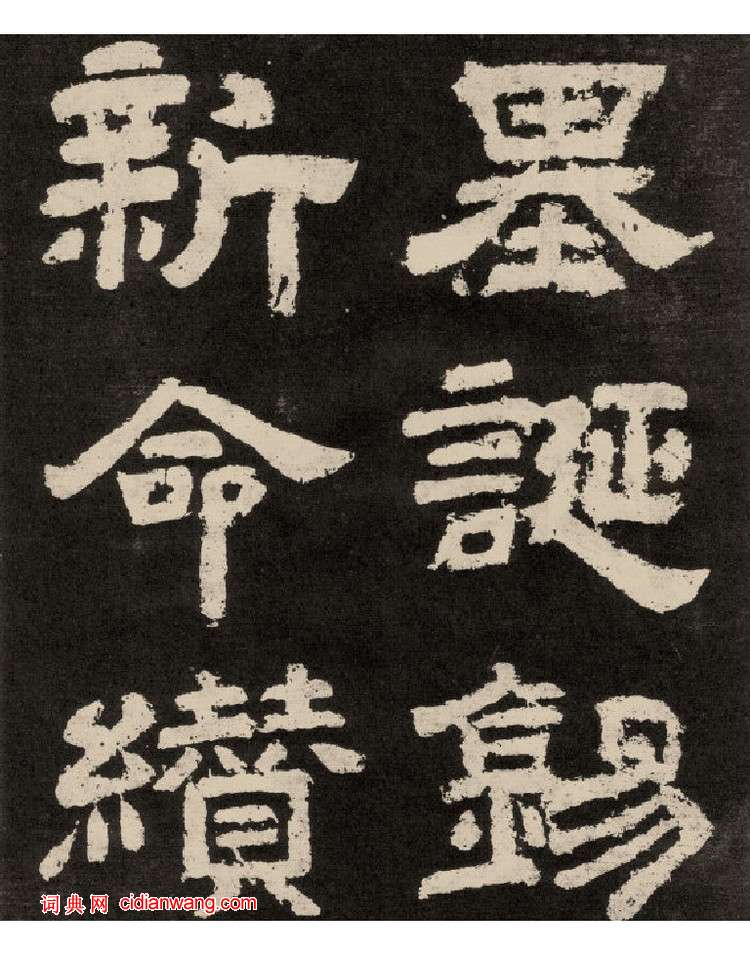 基誕錫
新命纘
词典网 cidianwang.com